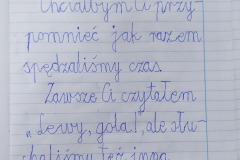 Chciałbym Ci przy-
pomnieć jak razem
spędzaliśmy czas.
Zawsze Ci czytałem
„Lewy, gola!", ale słu-
chaliśmy też inna